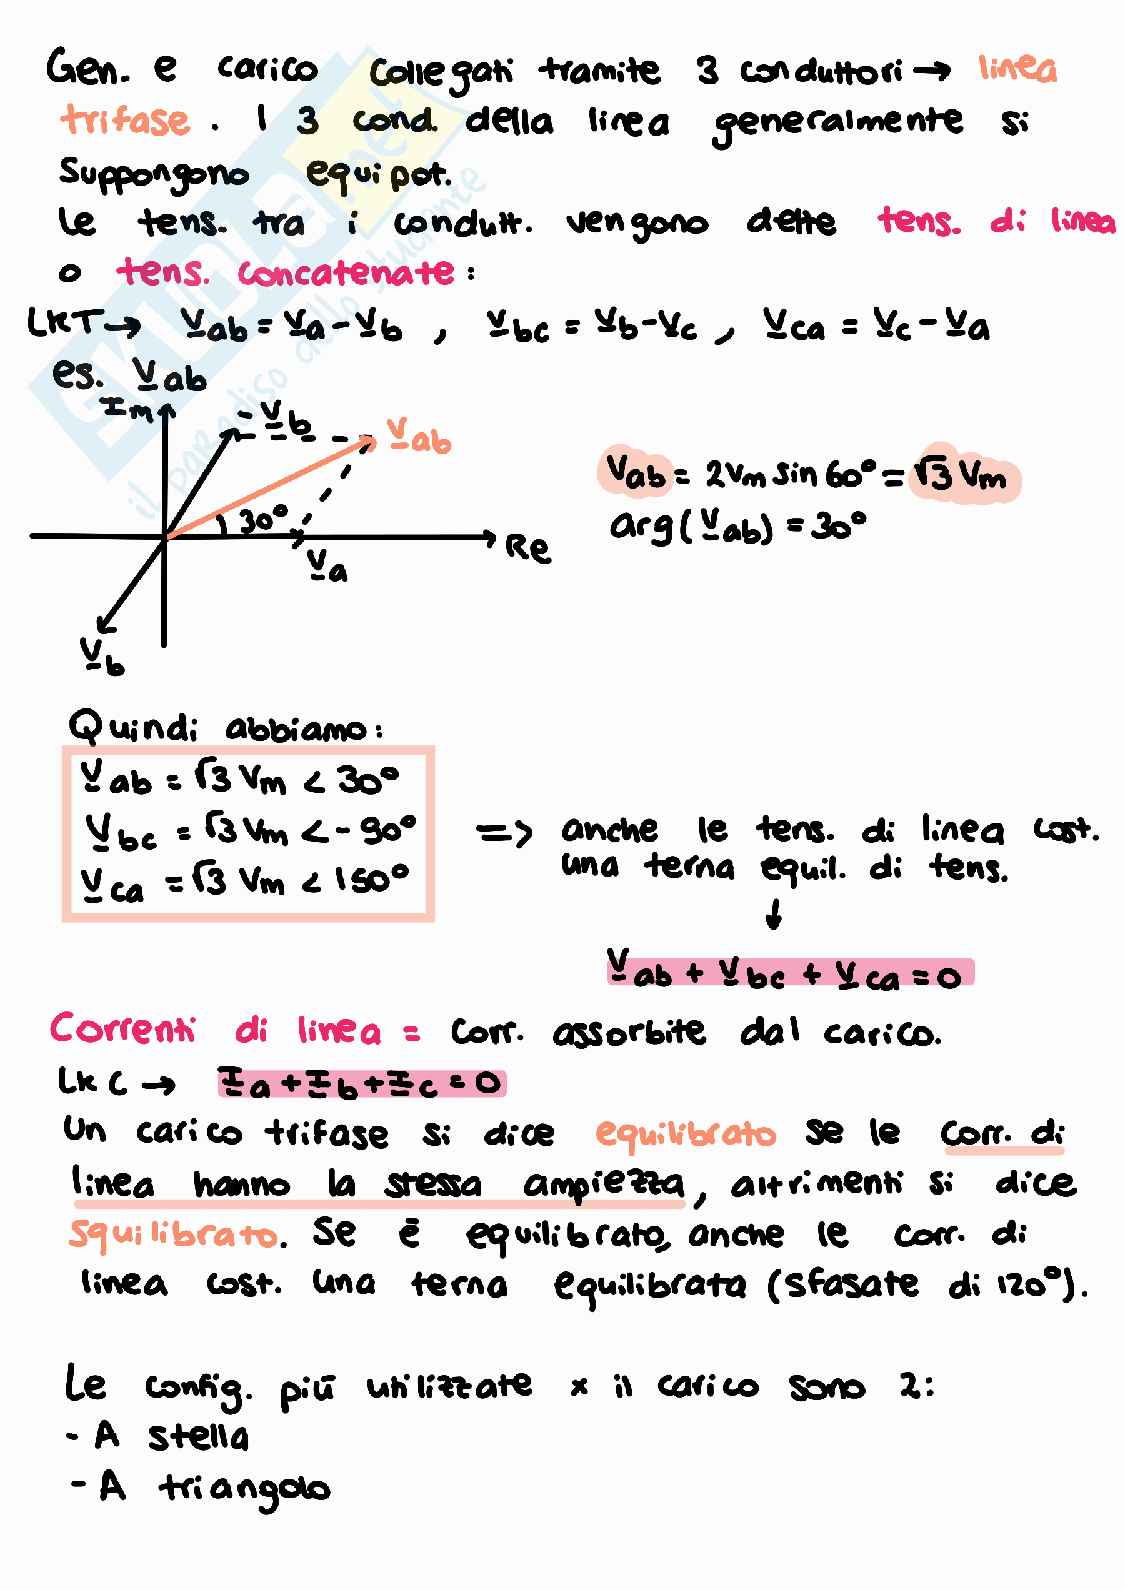 Gen. e carico collegati tramite 3 conduttori → linea
trifase. I 3 cond. della linea generalmente si
suppongono equipot.
Le tens. tra i condutt. vengono dette tens. di linea
o tens. concatenate:
LKT → Vab = Va - Vb , Vbc = Vb - Vc , Vca = Vc - Va
es. Vab
Im
-Vb
Vab
30°
Re
Va
Vb
Vab = 2Vm sin 60° = √3 Vm
arg(Vab) = 30°
Quindi abbiamo:
Vab = √3 Vm ∠ 30°
Vbc = √3 Vm ∠ -90°
Vca = √3 Vm ∠ 150°
=> anche le tens. di linea cost.
una terna equil. di tens.
↓
Vab + Vbc + Vca = 0
Correnti di linea = corr. assorbite dal carico.
LKC → Ia + Ib + Ic = 0
Un carico trifase si dice equilibrato se le corr. di
linea hanno la stessa ampiezza, altrimenti si dice
squilibrato. Se è equilibrato, anche le corr. di
linea cost. una terna equilibrata (sfasate di 120°).
Le config. più utilizzate x il carico sono 2:
- A stella
- A triangolo
SKUOLA.net
il paradiso dello studente